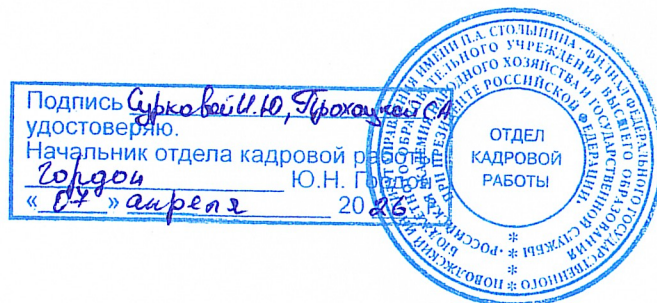 Подпись Сурковой И.Ю, Прохоцкой СА
удостоверяю.
Начальник отдела кадровой работы
Гордон Ю.Н. Гордон
«07» апреля 2026
ОТДЕЛ
КАДРОВОЙ
РАБОТЫ
ПОВОЛЖСКИЙ ИНСТИТУТ УПРАВЛЕНИЯ ИМЕНИ П.А. СТОЛЫПИНА - ФИЛИАЛ ФЕДЕРАЛЬНОГО ГОСУДАРСТВЕННОГО
БЮДЖЕТНОГО ОБРАЗОВАТЕЛЬНОГО УЧРЕЖДЕНИЯ ВЫСШЕГО ОБРАЗОВАНИЯ
РОССИЙСКАЯ АКАДЕМИЯ НАРОДНОГО ХОЗЯЙСТВА И ГОСУДАРСТВЕННОЙ СЛУЖБЫ
ПРИ ПРЕЗИДЕНТЕ РОССИЙСКОЙ ФЕДЕРАЦИИ